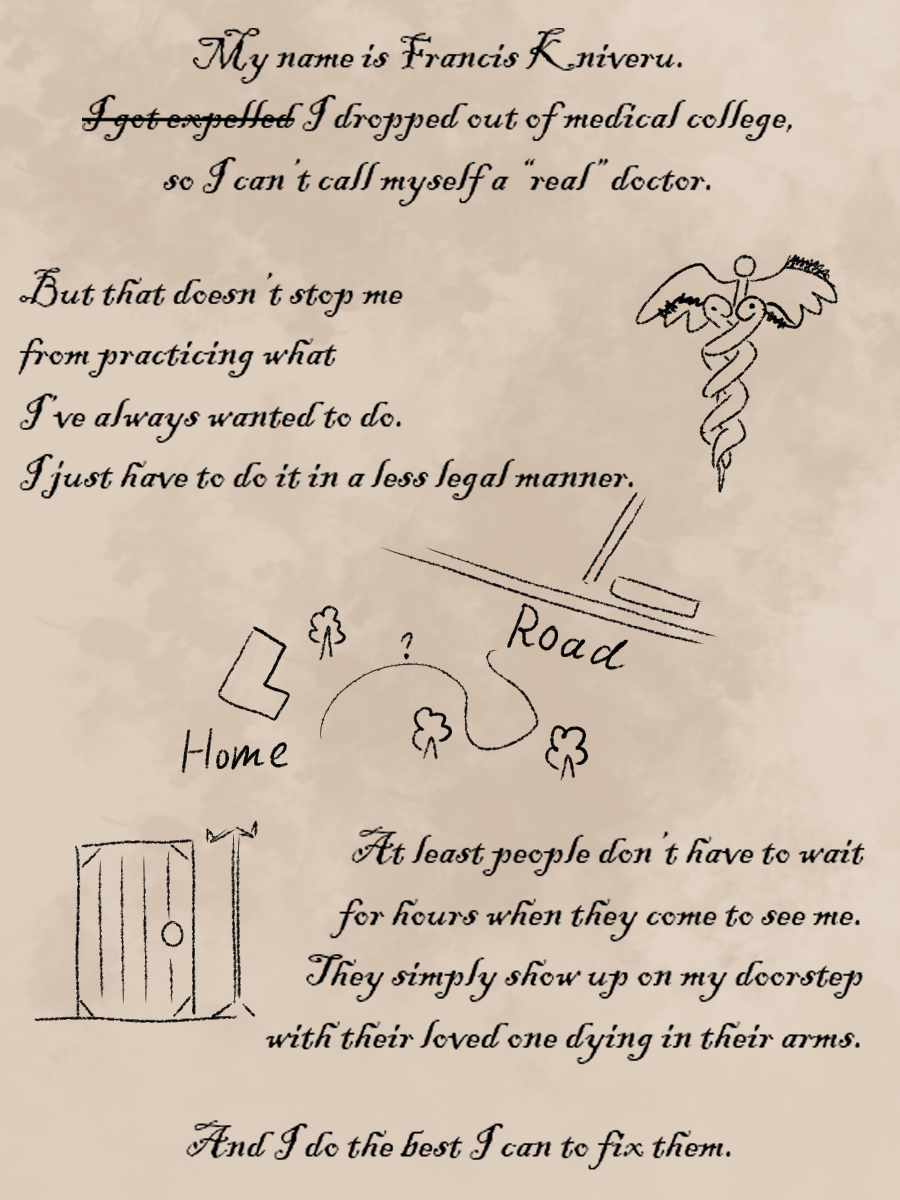 My name is Francis Kniveru.
I got expelled I dropped out of medical college,
so I can't call myself a “real” doctor.
But that doesn't stop me
from practicing what
I've always wanted to do.
I just have to do it in a less legal manner.
Road
?
Home
At least people don't have to wait
for hours when they come to see me.
They simply show up on my doorstep
with their loved one dying in their arms.
And I do the best I can to fix them.